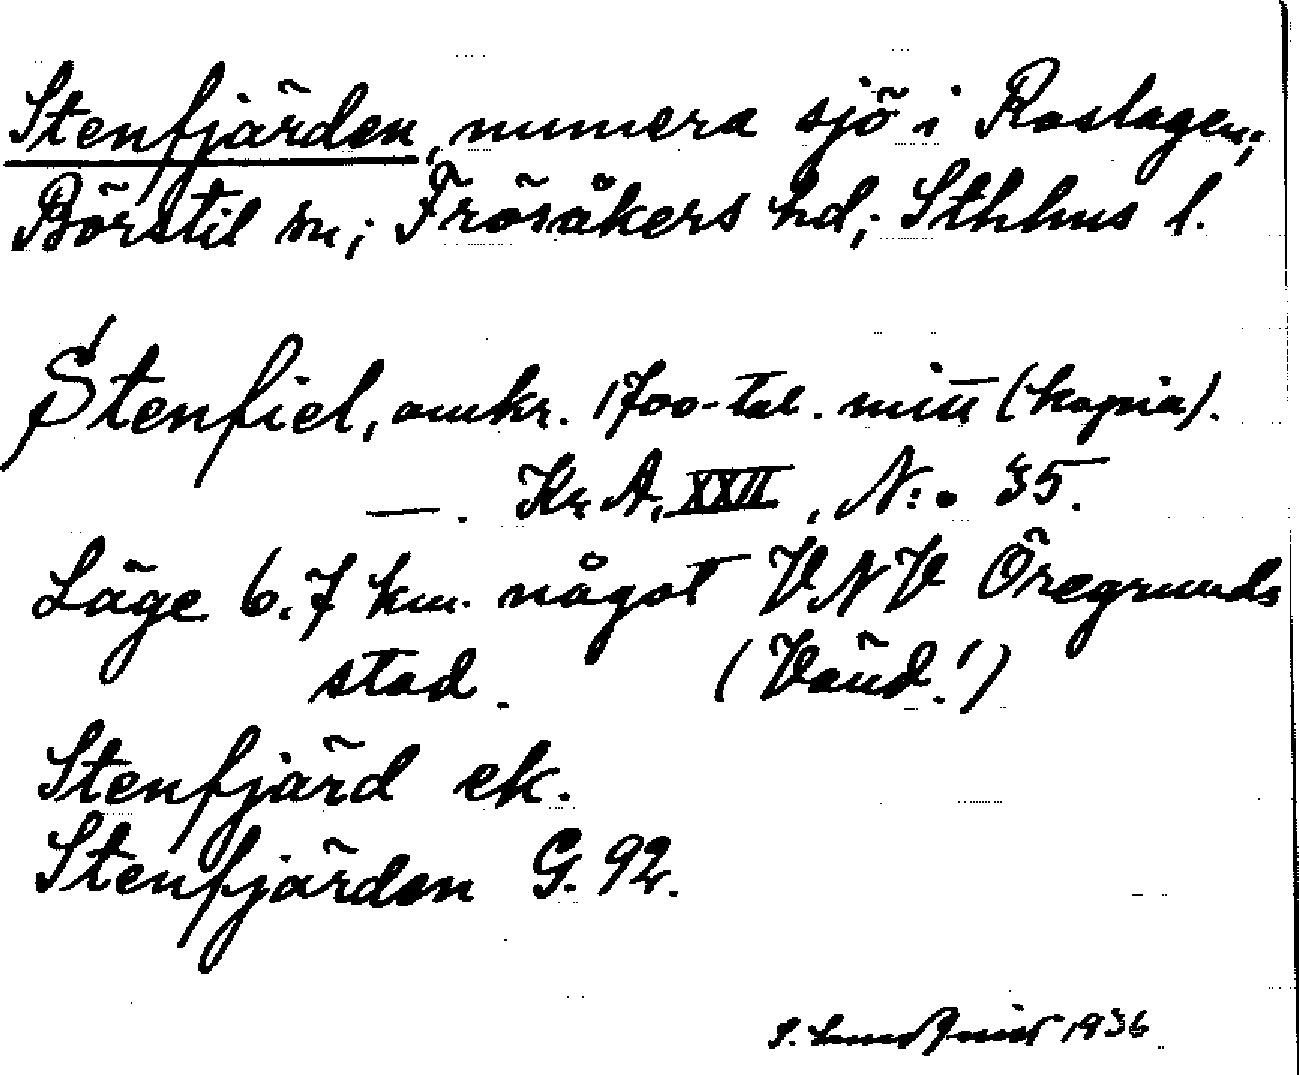 Stenfjärden, numera sjö i Roslagen;
Börstil sn; Frösåkers hd; Sthlms l.
Stenfiel, omkr. 1700-tal. mitt (kopia).
—. Kr. A. XXII, N:o 35.
Läge 6.7 km. något VNV Öregrunds
stad. (Vänd!)
Stenfjärd ek.
Stenfjärden G. 92.
S. Lundqvist 1936